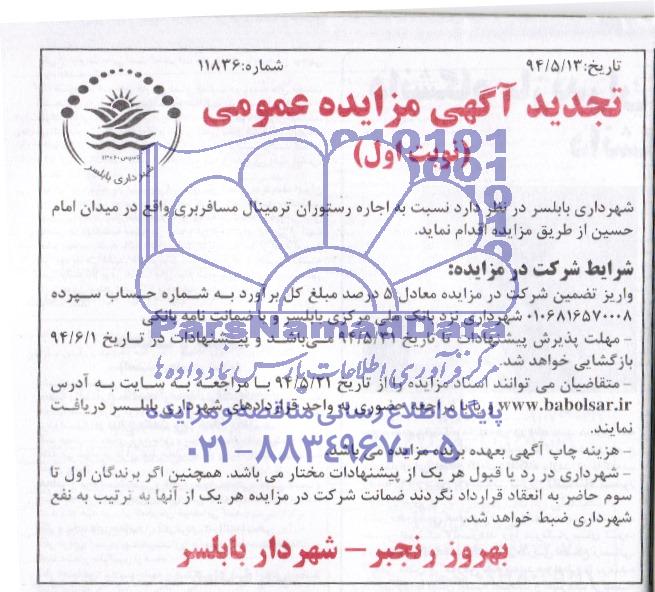 تاریخ:۹۴/۵/۱۳
شماره:۱۱۸۳۶
تجدید آگهی مزایده عمومی
(نوبت اول)
تاسیس ۱۳۰۶
شهرداری بابلسر
شهرداری بابلسر در نظر دارد نسبت به اجاره رستوران ترمینال مسافربری واقع در میدان امام
حسین از طریق مزایده اقدام نماید.
شرایط شرکت در مزایده:
واریز تضمین شرکت در مزایده معادل ۵ درصد مبلغ کل برآورد به شماره حساب سپرده
۰۱۰۶۸۱۶۵۷۰۰۰۸ شهرداری نزد بانک ملی مرکزی بابلسر و یا ضمانت نامه بانکی
- مهلت پذیرش پیشنهادات تا تاریخ ۹۴/۵/۳۱ می‌باشد و پیشنهادات در تاریخ ۹۴/۶/۱
بازگشایی خواهد شد.
- متقاضیان می توانند اسناد مزایده را از تاریخ ۹۴/۵/۲۱ با مراجعه به سایت به آدرس
www.babolsar.ir حضوری به واحد قراردادهای شهرداری بابلسر دریافت
نمایند.
- هزینه چاپ آگهی بعهده برنده مزایده می باشد.
- شهرداری در رد یا قبول هر یک از پیشنهادات مختار می باشد. همچنین اگر برندگان اول تا
سوم حاضر به انعقاد قرارداد نگردند ضمانت شرکت در مزایده هر یک از آنها به ترتیب به نفع
شهرداری ضبط خواهد شد.
بهروز رنجبر – شهردار بابلسر
ParsNamadData
مرکز فرآوری اطلاعات پارس نماد داده ها
پایگاه اطلاع رسانی مناقصه و مزایده
۰۲۱-۸۸۳۴۹۶۷۰-۵